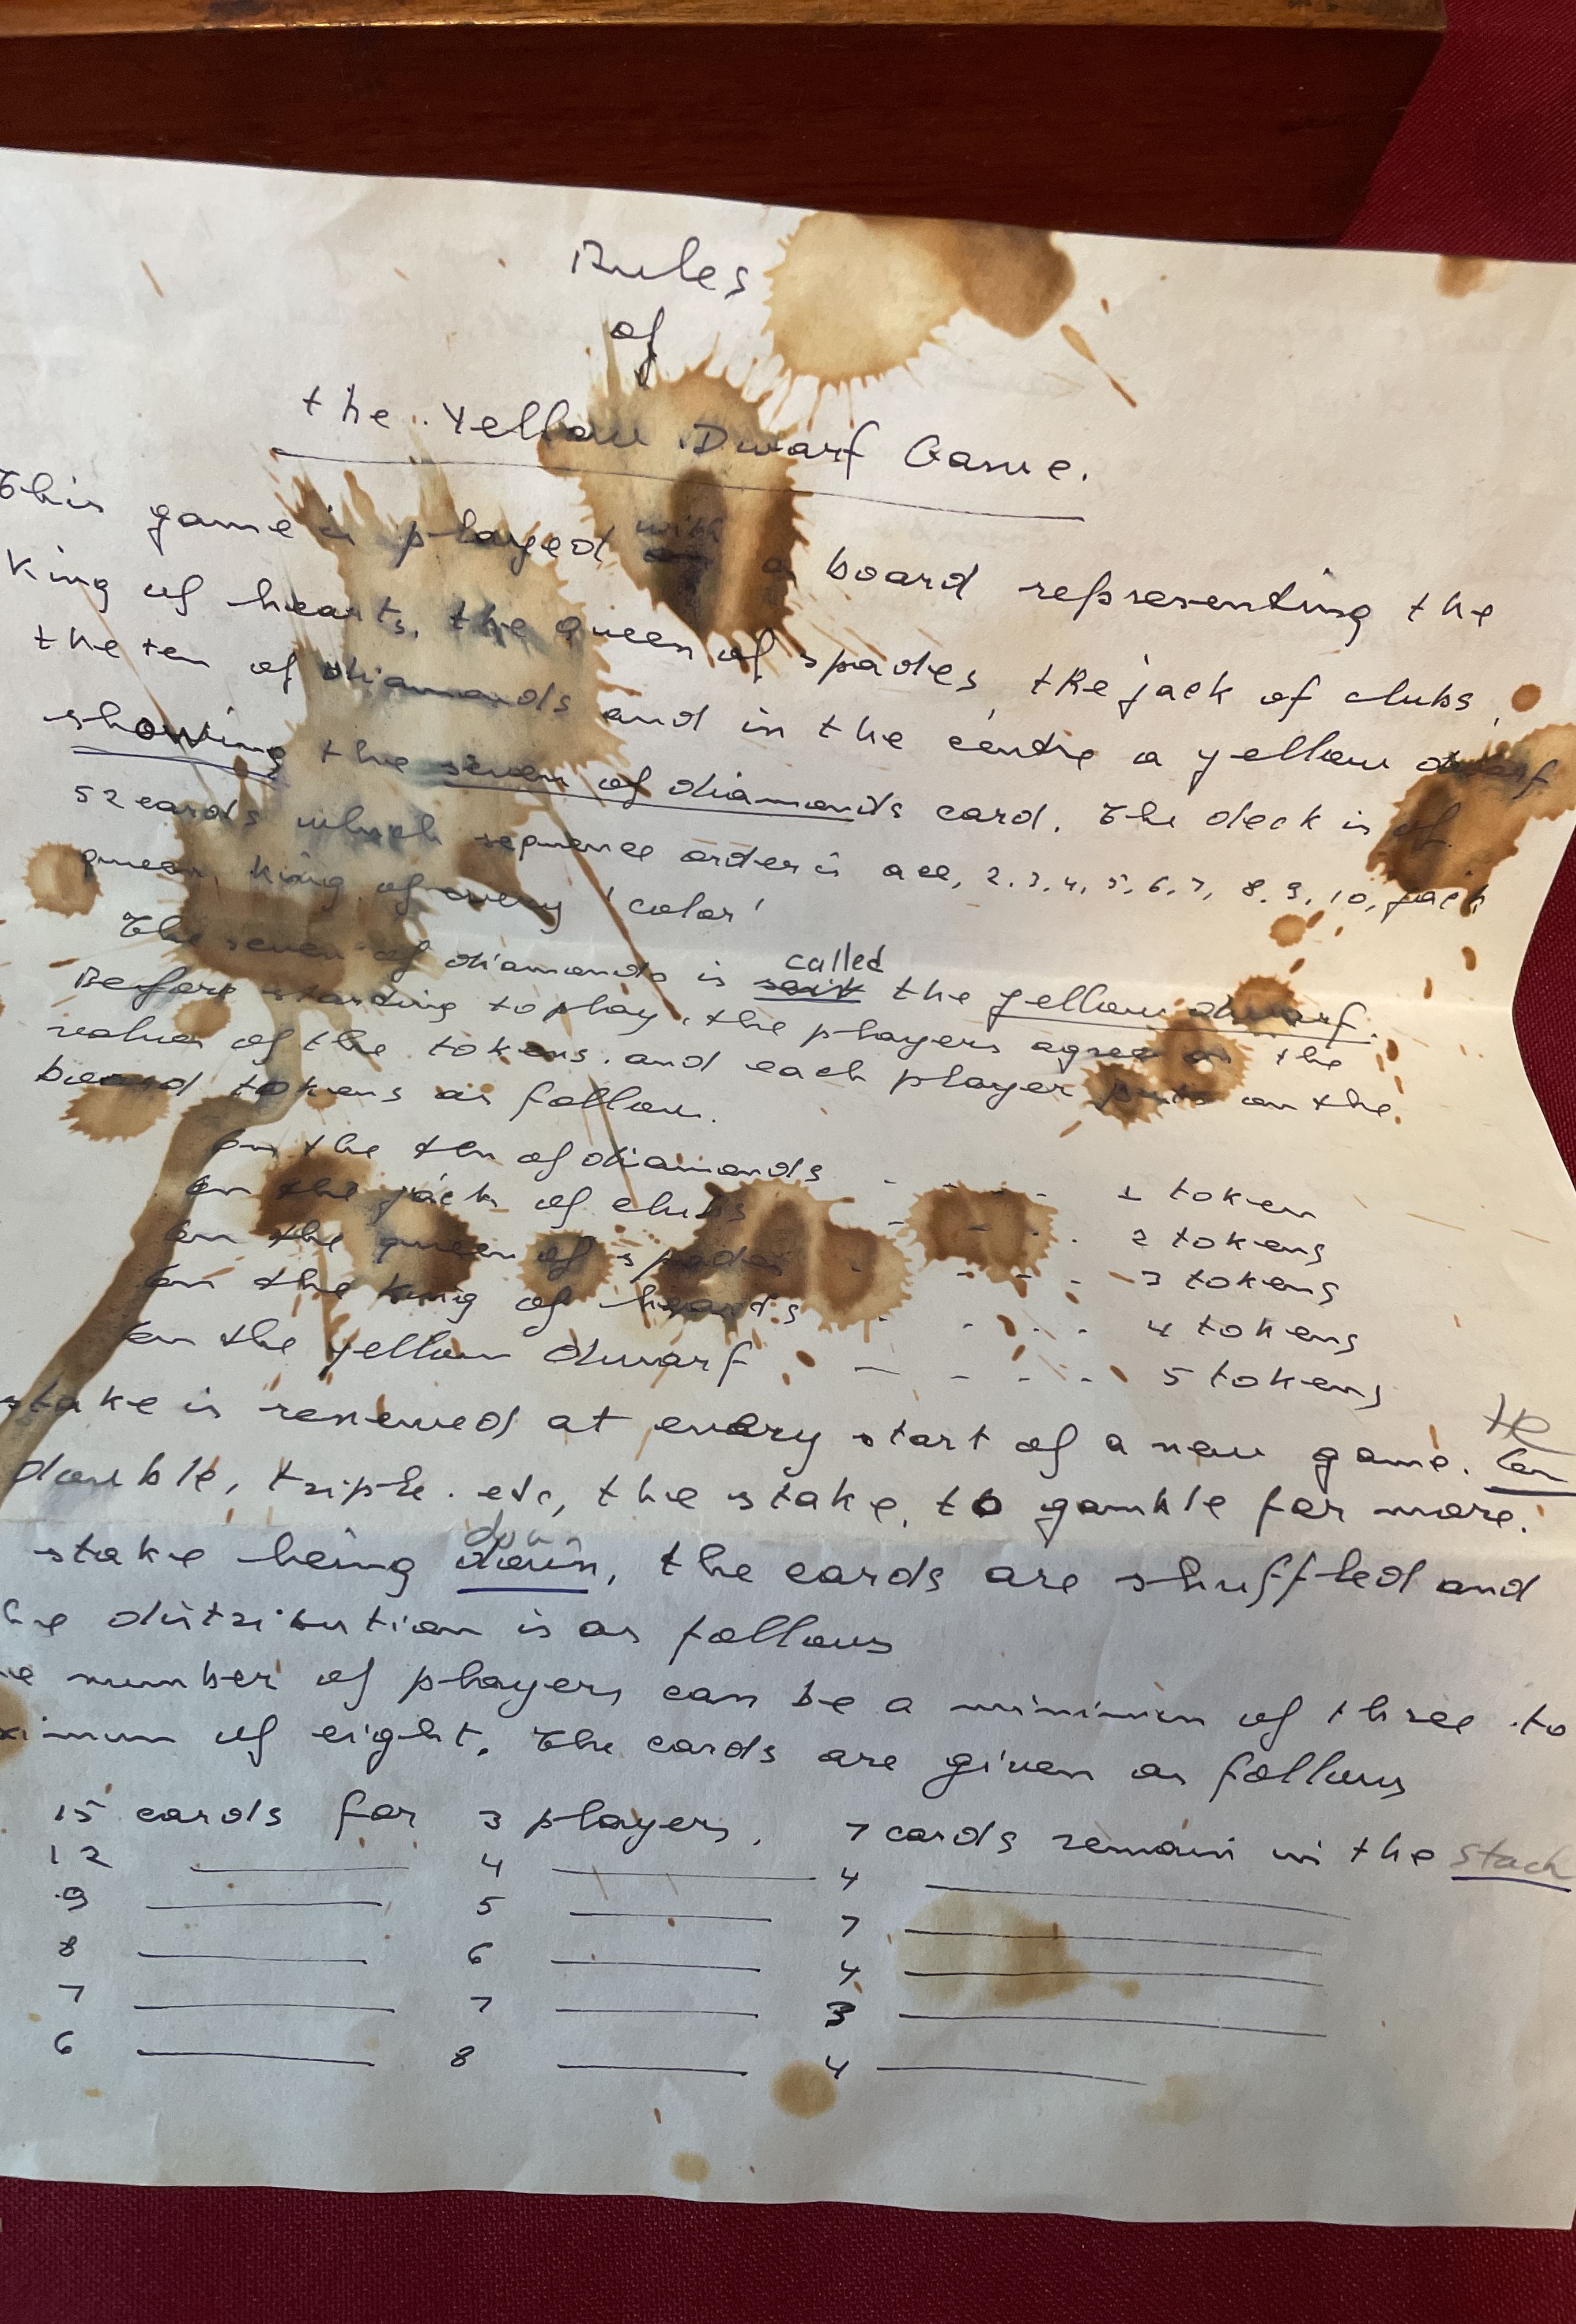 Rules
of
the Yellow Dwarf Game.
This game is played with a board representing the
King of hearts, the queen of spades, the jack of clubs,
the ten of diamonds and in the centre a yellow dwarf
showing the seven of diamonds card. The deck is of
52 cards which sequence order is ace, 2, 3, 4, 5, 6, 7, 8, 9, 10, jack
queen, king of every 'color'
The seven of diamonds is called the yellow dwarf.
Before starting to play, the players agree on the
value of the tokens and each player puts on the
board tokens as follow.
on the ten of diamonds - - - - 1 token
on the jack of clubs - - . 2 tokens
on the queen of spades - - - - 3 tokens
on the King of hearts . - . . 4 tokens
on the yellow dwarf . - - - . 5 tokens
stake is renewed at every start of a new game.
double, triple. etc, the stake, to gamble for more.
stake being down, the cards are shuffled and
distribution is as follows
number of players can be a minimum of three to
ximum of eight. The cards are given as follows
15 cards for 3 players, 7 cards remain in the stack
12 ___ 4 ___ 4 ___
9 ___ 5 ___ 7 ___
8 ___ 6 ___ 4 ___
7 ___ 7 ___ 3 ___
6 ___ 8 ___ 4 ___